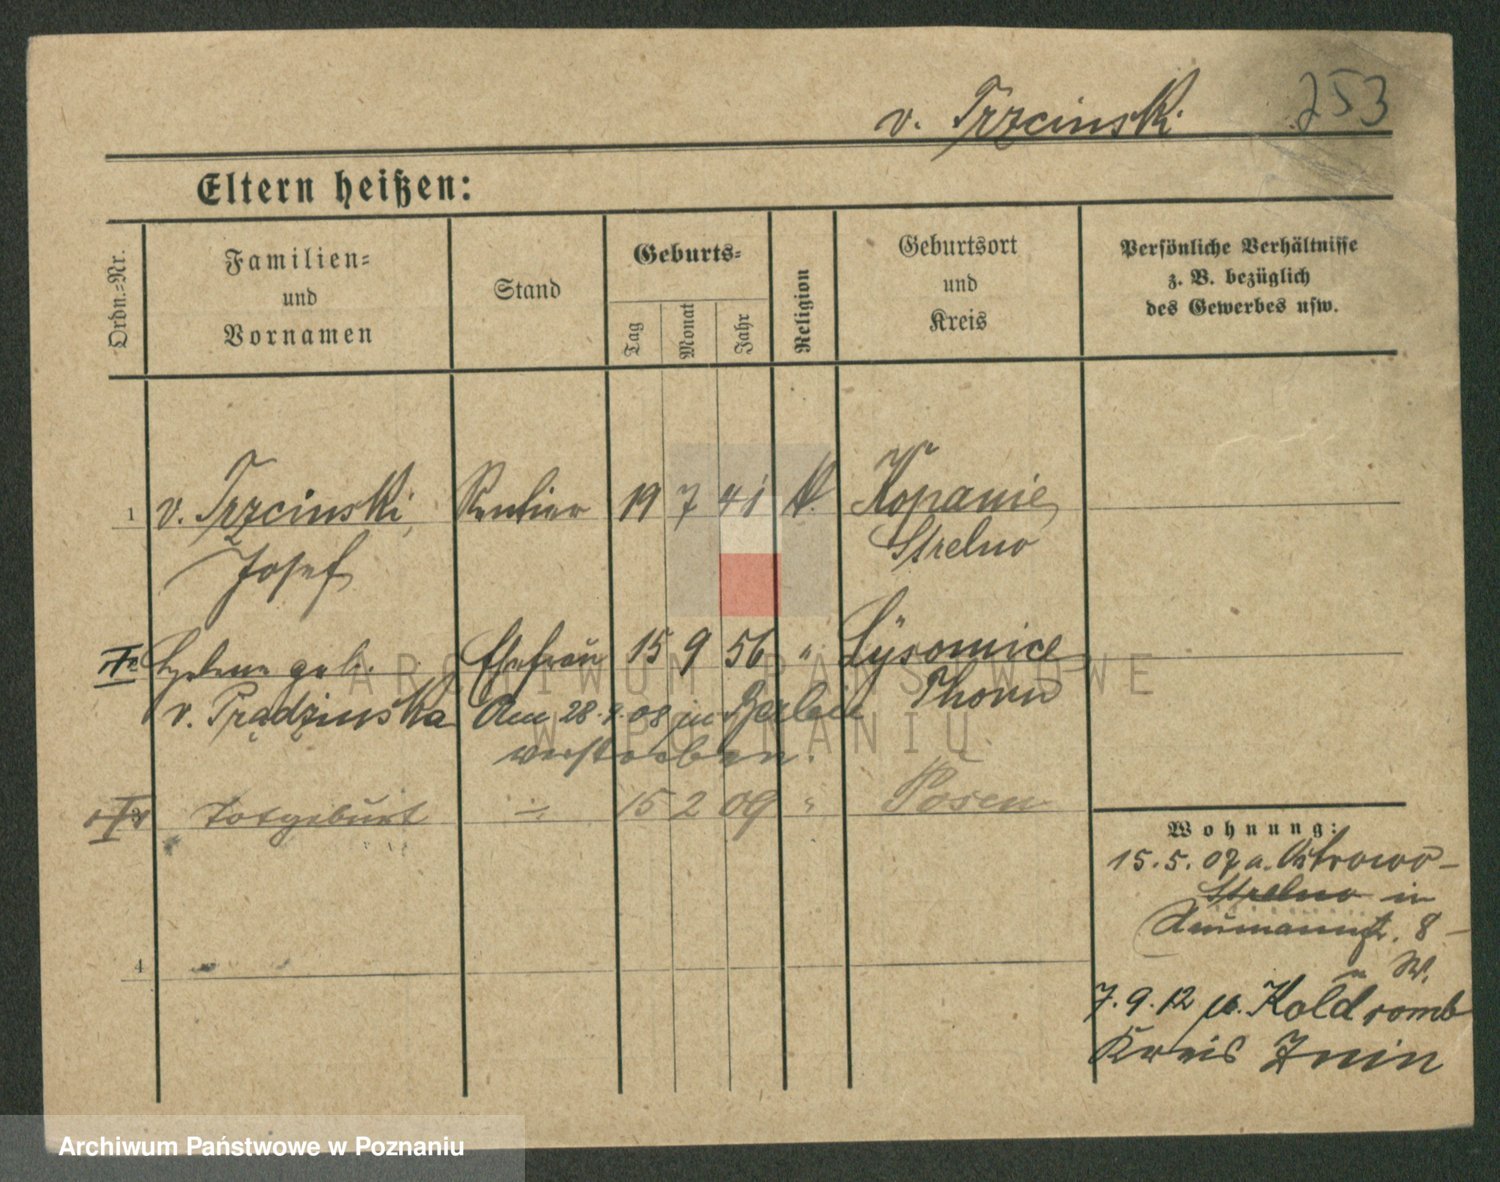 v. Trzcinski 253
Eltern heißen:
Ordn.=Nr.
Familien=
und
Vornamen
Stand
Geburts=
Tag
Monat
Jahr
Religion
Geburtsort
und
Kreis
Persönliche Verhältnisse
z. B. bezüglich
des Gewerbes usw.
1 v. Trzcinski, Rentier 19 7 41 k. Kopanie,
Josef Strelno
Helene geb. Ehefrau 15 9 56 " Lysomice
v. Prądzinska Thorn
Am 28. 9. 08 in Berlin
verstorben.
Totgeburt 15 2 09 " Posen
4
Wohnung:
15. 5. 07 a. Ostrowo-
Strelno in
Naumannstr. 8 -
W.
7. 9. 12 n. Koldromb
Kreis Znin
ARCHIWUM PAŃSTWOWE
W POZNANIU
Archiwum Państwowe w Poznaniu